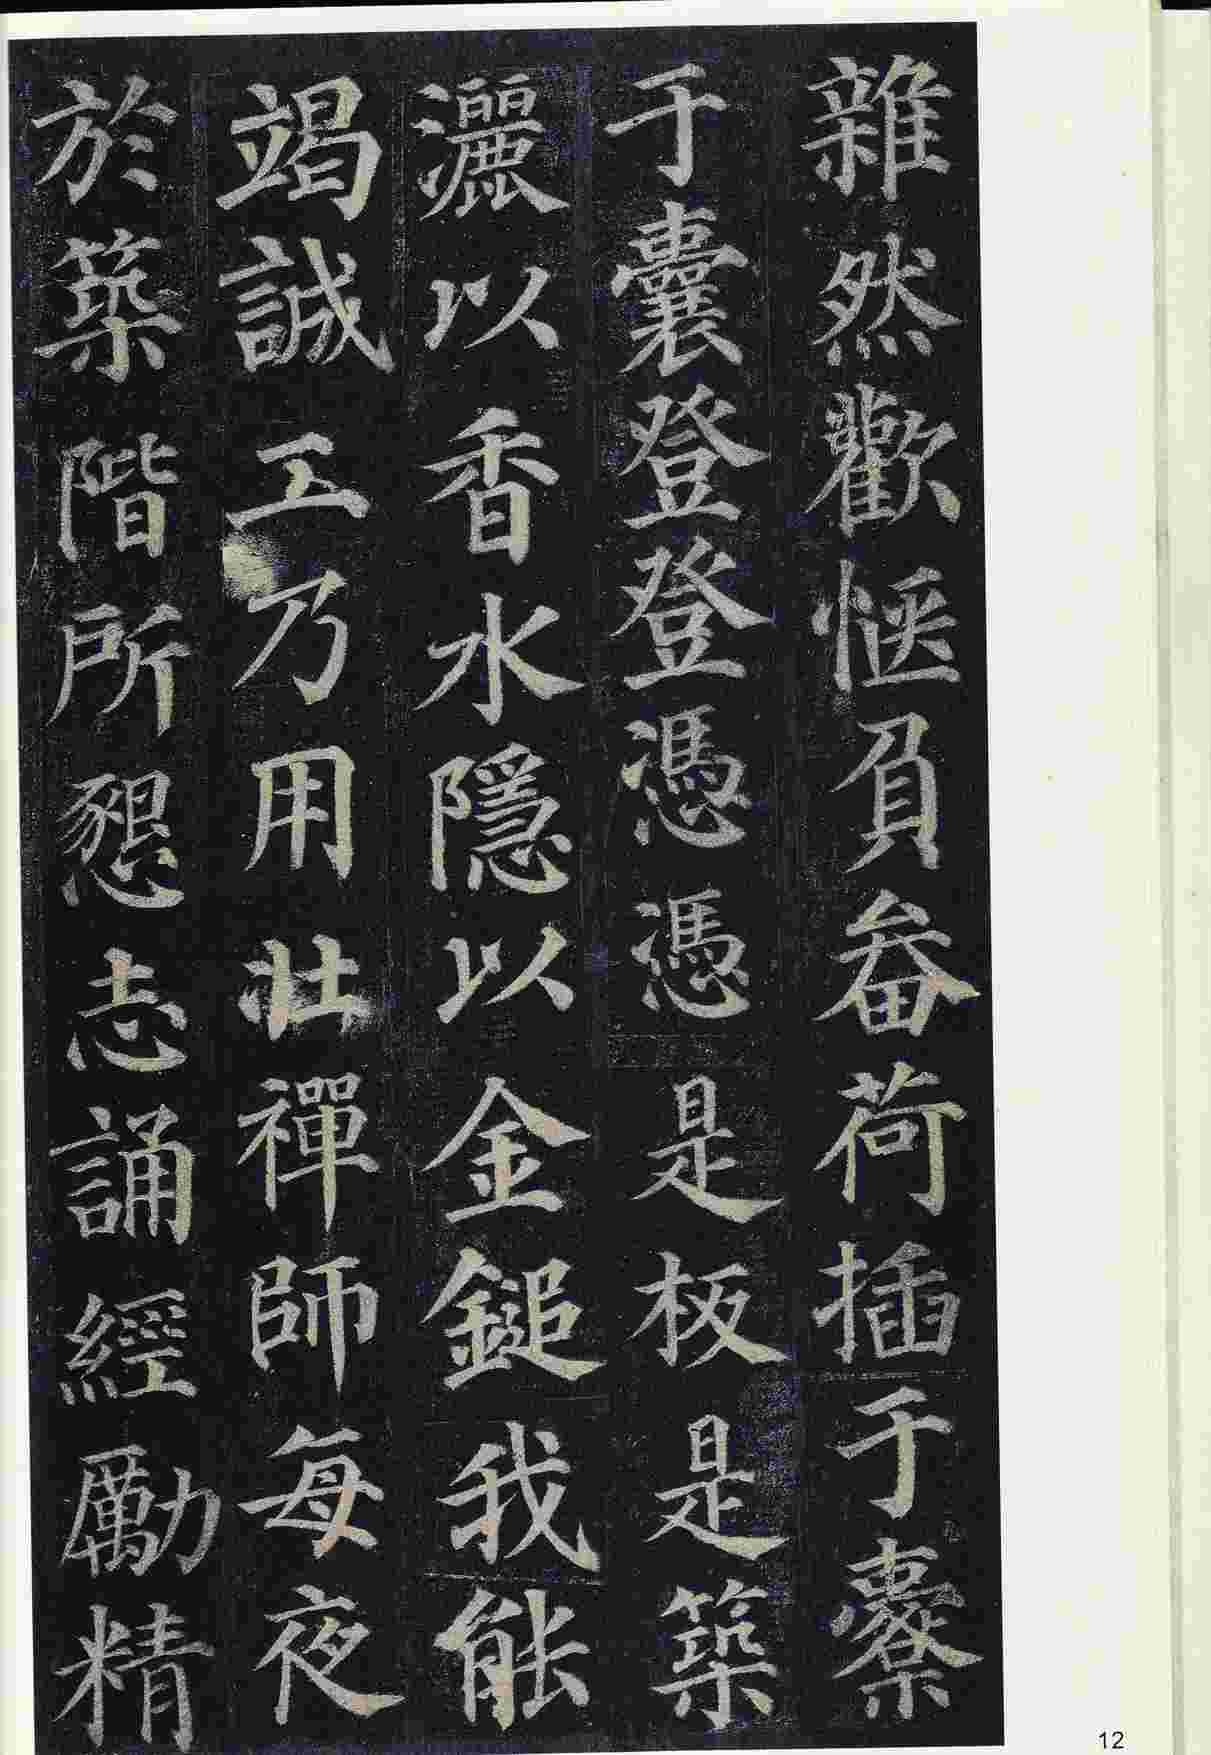 雜然歡愜負畚荷插于橐
于囊登登憑憑是板是築
灑以香水隱以金鎚我能
竭誠工乃用壯禪師每夜
於築階所懇志誦經勵精
12